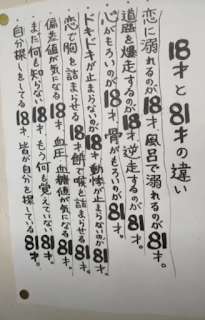 18才と81才の違い
恋に溺れるのが18才 風呂で溺れるのが81才。
道路を爆走するのが18才 逆走するのが81才。
心がもろいのが18才 骨がもろいのが81才。
ドキドキが止まらないのが18才 動悸が止まらないのが81才
恋で胸を詰まらせる18才 餅で喉を詰まらせる81才。
偏差値が気になる18才 血圧、血糖値が気になる81才。
まだ何も知らない18才 もう何も覚えていない81才。
自分探しをしてる18才 皆が自分を探している81才。